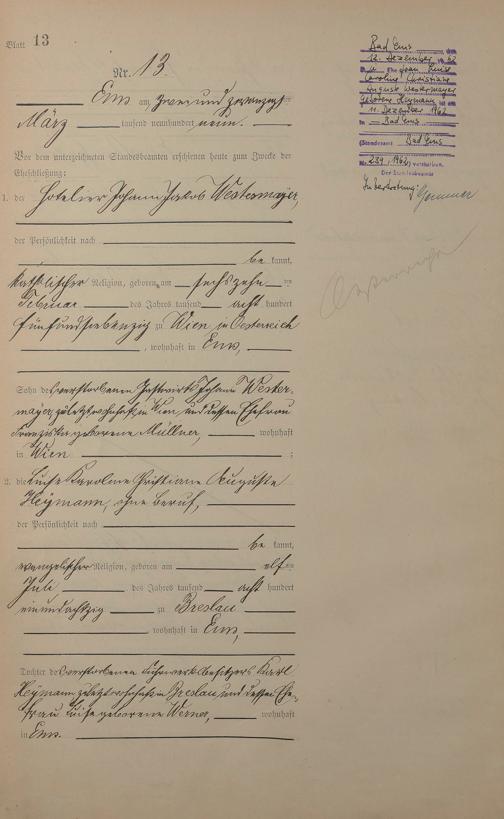 Blatt 13
Nr. 13.
Ems am zwei und zwanzigsten
März tausend neunhundert neun.
Vor dem unterzeichneten Standesbeamten erschienen heute zum Zwecke der
Eheschließung:
1. der Hotelier Johann Jakob Westermayer,
der Persönlichkeit nach
be kannt,
katholischer Religion, geboren am sechszehn ten
Februar des Jahres tausend acht hundert
fünfundsiebenzig zu Wien in Oesterreich
, wohnhaft in Ems,
Sohn des verstorbenen Gastwirts Johann Wester
mayer, zuletzt wohnhaft in Wien, und dessen Ehefrau
Franziska geborene Müllner, wohnhaft
in Wien ;
2. die Luise Karoline Christiane Auguste
Heymann, ohne Beruf,
der Persönlichkeit nach
be kannt,
evangelischer Religion, geboren am elf ten
Juli des Jahres tausend acht hundert
einundachtzig zu Breslau
wohnhaft in Ems,
Tochter des verstorbenen Fuhrwerksbesitzers Karl
Heymann, zuletzt wohnhaft in Breslau, und dessen Ehe
frau Luise geborene Werner, wohnhaft
in Ems.
Bad Ems, den
12. Dezember 1962
Caroline Christiane
Auguste Westermayer
geborene Heymann ist am
11. Dezember 1962
in Bad Ems
(Standesamt Bad Ems
Nr. 239/1962) verstorben.
Der Standesbeamte
In Vertretung: